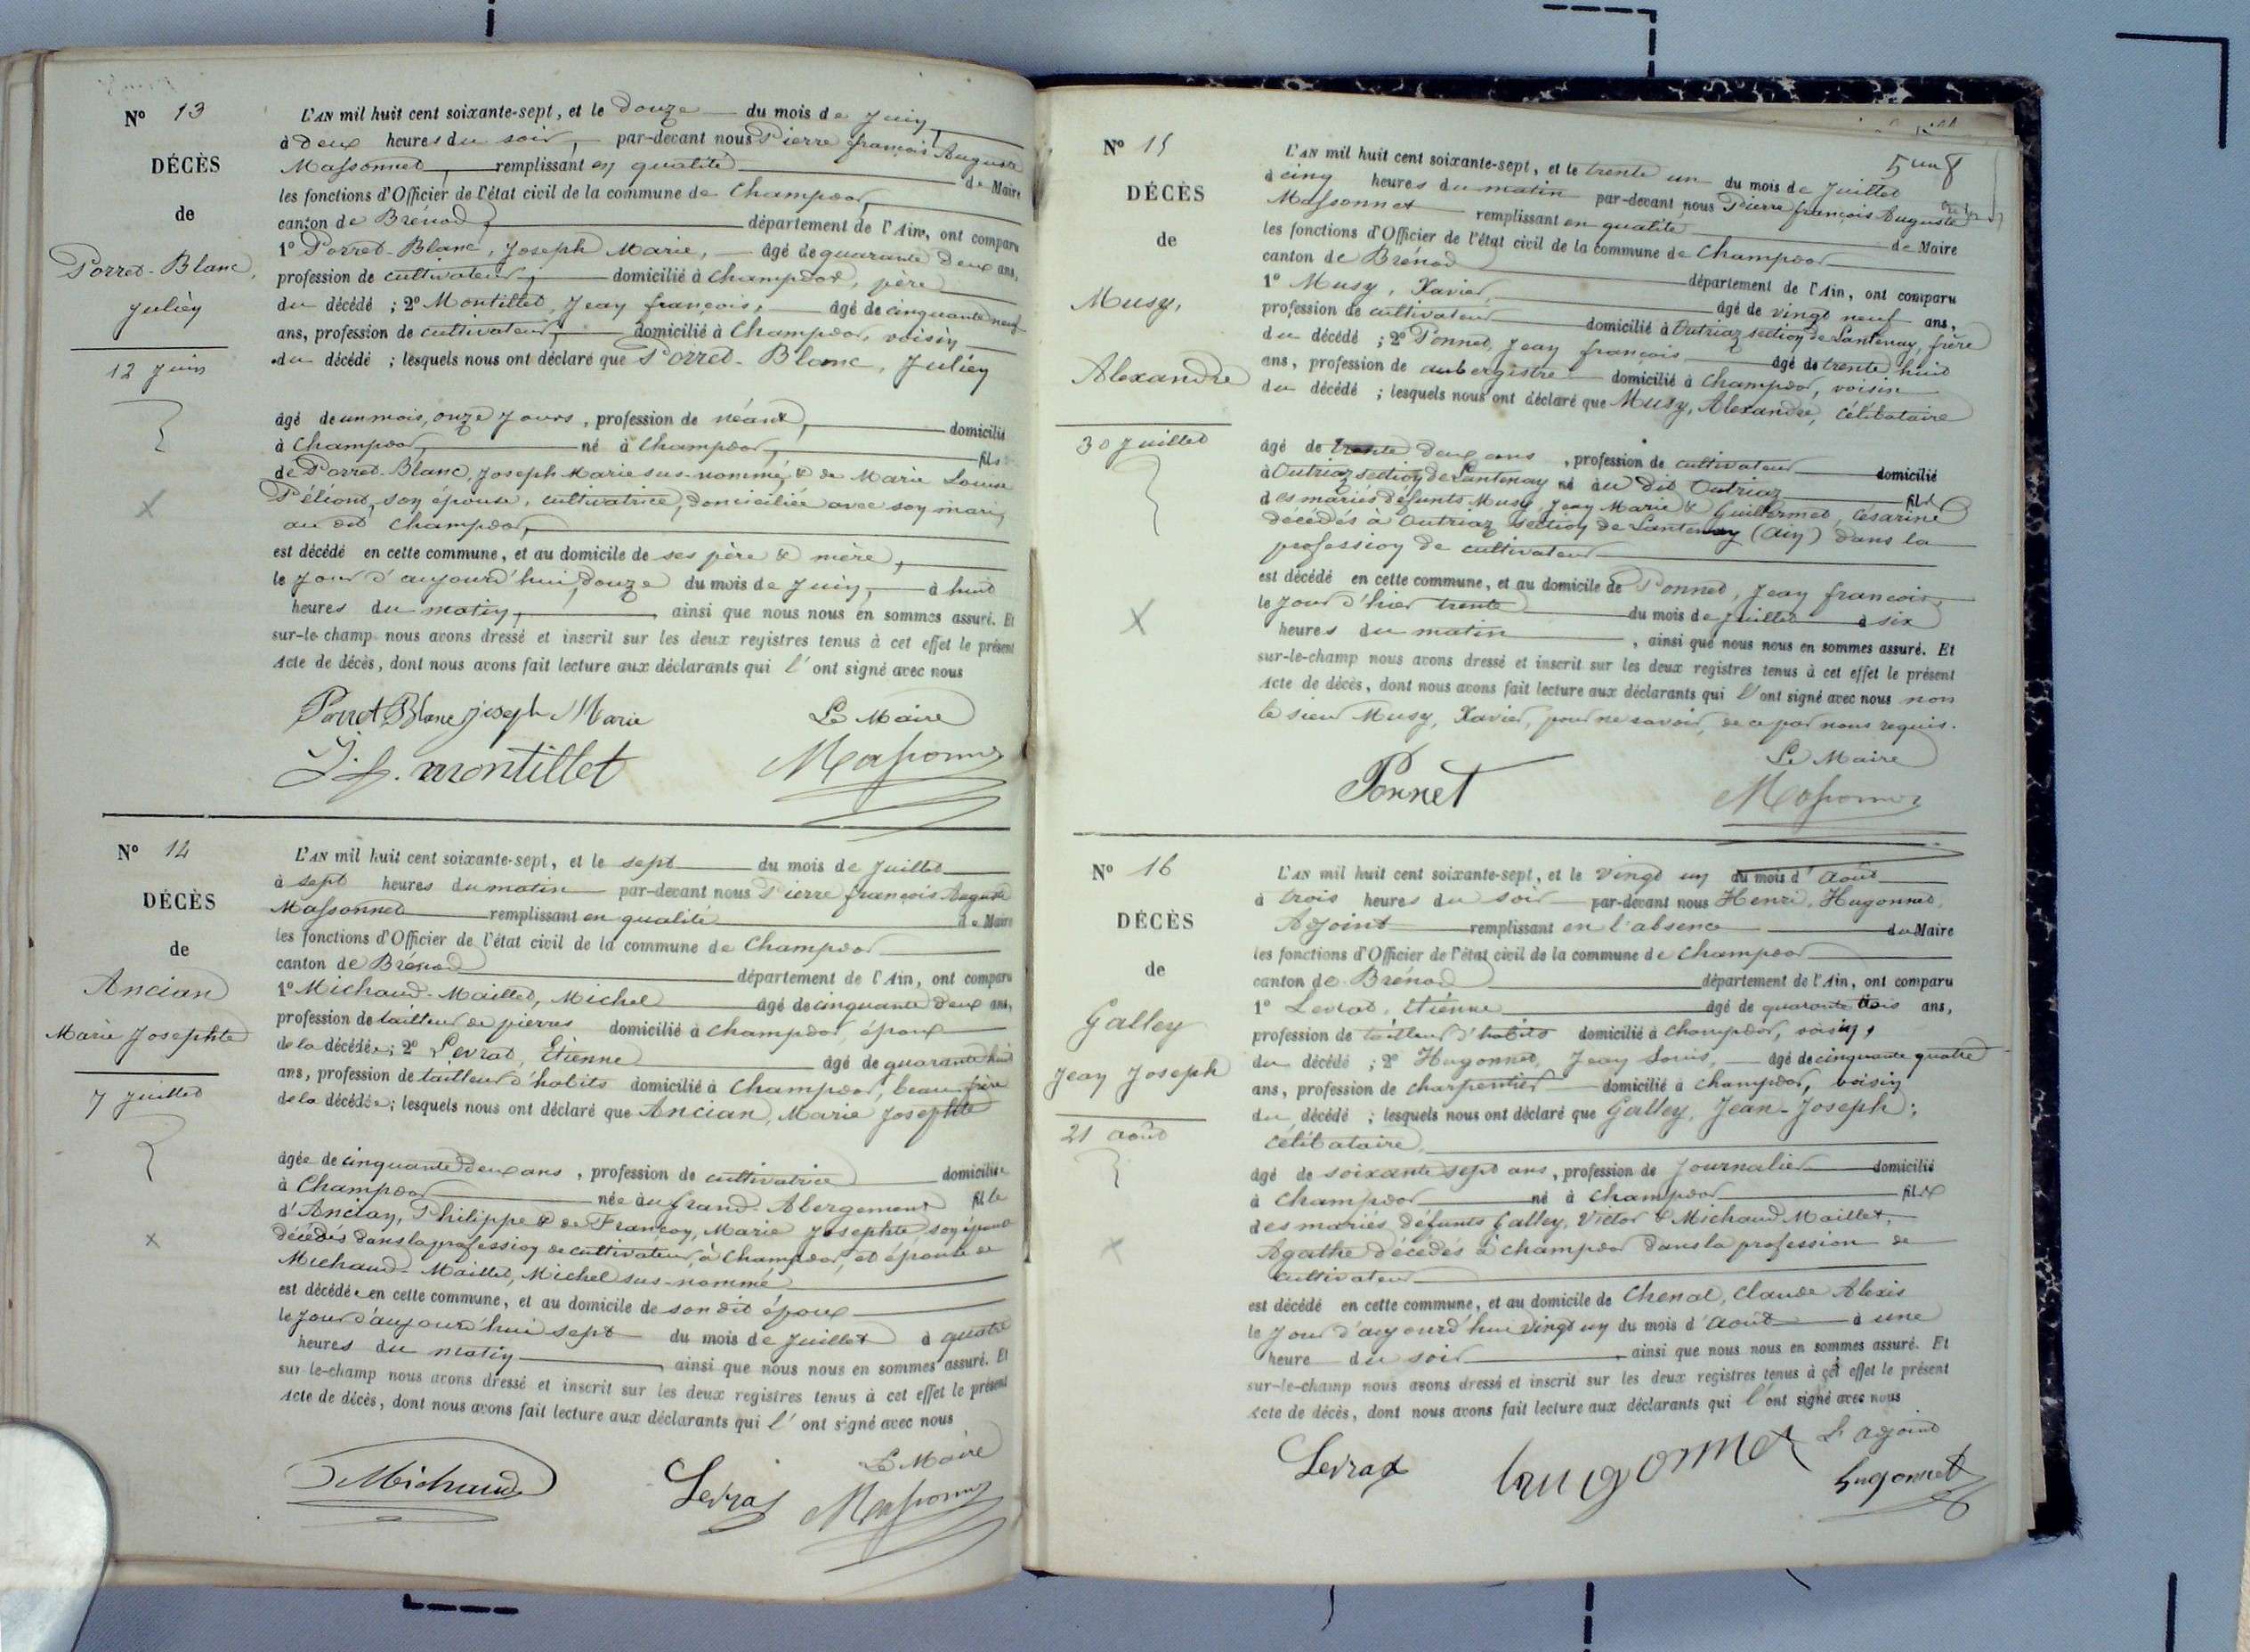 N° 13
DÉCÈS
de
Porret-Blanc,
Juliey
12 juin
L'AN mil huit cent soixante-sept, et le douze du mois de juin,
à deux heures du soir, par-devant nous Pierre françois Auguste
Massonnet, remplissant en qualité de Maire
les fonctions d'Officier de l'état civil de la commune de Champdor,
canton de Brénod, département de l'Ain, ont comparu
1° Porret-Blanc, Joseph Marie, âgé de quarante deux ans,
profession de cultivateur, domicilié à Champdor, père
du décédé ; 2° Montillet, Jean françois, âgé de cinquante neuf
ans, profession de cultivateur, domicilié à Champdor, voisin
du décédé ; lesquels nous ont déclaré que Porret-Blanc, Juliey
âgé de un mois, onze jours, profession de néant, domicilié
à Champdor, né à Champdor, fils
de Porret-Blanc, Joseph Marie sus-nommé, & de Marie Louise
son épouse, cultivatrice, domiciliée avec son mari,
au dit Champdor,
est décédé en cette commune, et au domicile de ses père & mère,
le jour d'aujourd'hui, douze du mois de juin, à huit
heures du matin, ainsi que nous nous en sommes assuré. Et
sur-le-champ nous avons dressé et inscrit sur les deux registres tenus à cet effet le présent
Acte de décès, dont nous avons fait lecture aux déclarants qui l'ont signé avec nous
Porret Blanc joseph Marie
Le Maire
J. f. montillet
Massonnet
N° 14
DÉCÈS
de
Ancian
Marie Josephte
7 juillet
L'AN mil huit cent soixante-sept, et le sept du mois de juillet
à sept heures du matin par-devant nous Pierre françois Auguste
Massonnet remplissant en qualité de Maire
les fonctions d'Officier de l'état civil de la commune de Champdor
canton de Brénod département de l'Ain, ont comparu
1° Michaud-Maillet, Michel âgé de cinquante deux ans,
profession de tailleur de pierres domicilié à Champdor, époux
de la décédée ; 2° Levrat, Etienne âgé de quarante huit
ans, profession de tailleur d'habits domicilié à Champdor, beau frère
de la décédée ; lesquels nous ont déclaré que Ancian, Marie Josephte
âgée de cinquante deux ans, profession de cultivatrice domiciliée
à Champdor née au grand-Abergement fille
d'Ancian, Philippe & de Françon, Marie Josephte, son épouse
décédés dans la profession de cultivateur, à Champdor, et épouse de
Michaud-Maillet, Michel sus-nommé
est décédée en cette commune, et au domicile de son dit époux
le jour d'aujourd'hui sept du mois de juillet à quatre
heures du matin, ainsi que nous nous en sommes assuré. Et
sur-le-champ nous avons dressé et inscrit sur les deux registres tenus à cet effet le présent
Acte de décès, dont nous avons fait lecture aux déclarants qui l'ont signé avec nous
Le Maire
Michaud
Levrat
Massonnet
N° 15
DÉCÈS
de
Musy,
Alexandre
30 juillet
L'AN mil huit cent soixante-sept, et le trente un du mois de juillet
à cinq heures du matin par-devant nous Pierre françois Auguste
Massonnet remplissant en qualité de Maire
les fonctions d'Officier de l'état civil de la commune de Champdor
canton de Brénod département de l'Ain, ont comparu
1° Musy, Xavier, âgé de vingt neuf ans,
profession de cultivateur domicilié à Outriaz section de Lantenay, frère
du décédé ; 2° Ponnet, Jean françois âgé de trente huit
ans, profession de aubergistre domicilié à Champdor, voisin
du décédé ; lesquels nous ont déclaré que Musy, Alexandre, célibataire
âgé de trente deux ans, profession de cultivateur domicilié
à Outriaz section de Lantenay né au dit Outriaz fils
des mariés défunts Musy Jean Marie & Guillermet, Césarine
décédés à Outriaz section de Lantenay (Ain) dans la
profession de cultivateur
est décédé en cette commune, et au domicile de Ponnet, Jean françois,
le jour d'hier trente du mois de juillet à six
heures du matin, ainsi que nous nous en sommes assuré. Et
sur-le-champ nous avons dressé et inscrit sur les deux registres tenus à cet effet le présent
Acte de décès, dont nous avons fait lecture aux déclarants qui l'ont signé avec nous non
le sieur Musy, Xavier, pour ne savoir, de ce par nous requis.
Le Maire
Ponnet
Massonnet
N° 16
DÉCÈS
de
Galley
Jean Joseph
21 août
L'AN mil huit cent soixante-sept, et le vingt un du mois d'août
à trois heures du soir par-devant nous Henri, Hugonnet,
Adjoint remplissant en l'absence du Maire
les fonctions d'Officier de l'état civil de la commune de Champdor
canton de Brénod département de l'Ain, ont comparu
1° Levrat, Etienne âgé de quarante trois ans,
profession de tailleur d'habits domicilié à Champdor, voisin,
du décédé ; 2° Hugonnet, Jean Louis, âgé de cinquante quatre
ans, profession de charpentier domicilié à Champdor, voisin
du décédé ; lesquels nous ont déclaré que Galley, Jean-Joseph ;
célibataire,
âgé de soixante sept ans, profession de journalier domicilié
à Champdor né à Champdor fils
des mariés défunts Galley, Victor & Michaud Maillet,
Agathe décédés à Champdor dans la profession de
cultivateur
est décédé en cette commune, et au domicile de Chenal, Claude Alexis
le jour d'aujourd'hui vingt un du mois d'août à une
heure du soir, ainsi que nous nous en sommes assuré. Et
sur-le-champ nous avons dressé et inscrit sur les deux registres tenus à cet effet le présent
Acte de décès, dont nous avons fait lecture aux déclarants qui l'ont signé avec nous
L'adjoint
Levrat
hugonnet
hugonnet